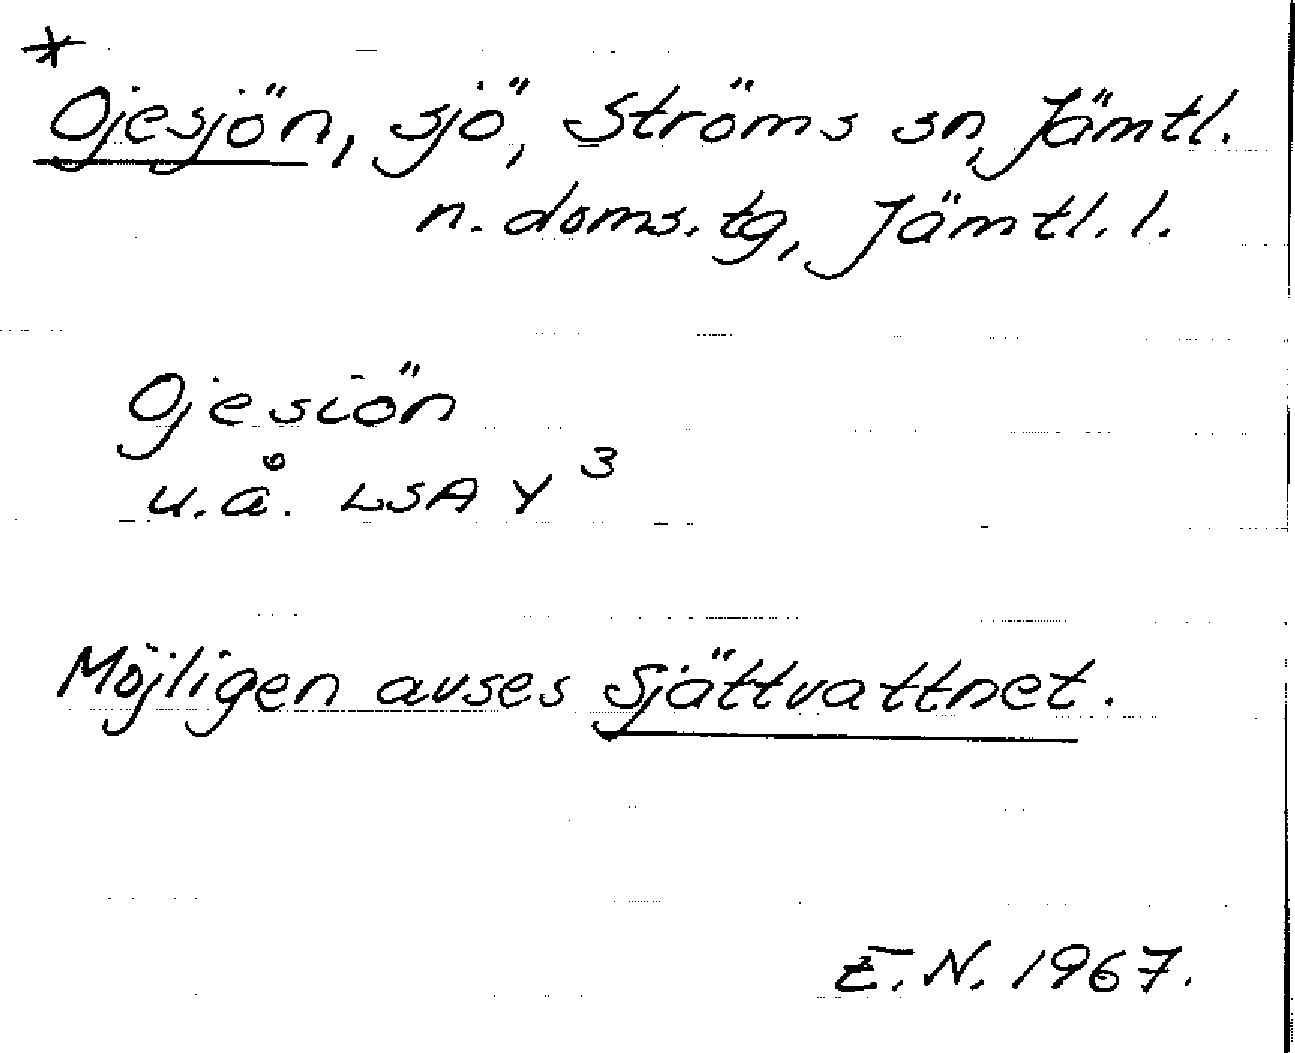 *
Ojesjön, sjö, Ströms sn, Jämtl.
n. doms. tg, Jämtl. l.
Ojesiön
u.å. LSA Y 3
Möjligen avses Sjättvattnet.
E.N. 1967.